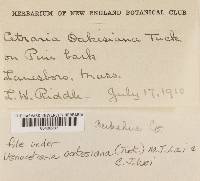 HERBARIUM OF NEW ENGLAND BOTANICAL CLUB
Cetraria Oakesiana Tuck
on Pine bark
Lanesboro, Mass.
L. W. Riddle. July 17, 1910
Berkshire Co
file under
oakesiana (Tuck.) M.J. Lai &
C.J. Wei